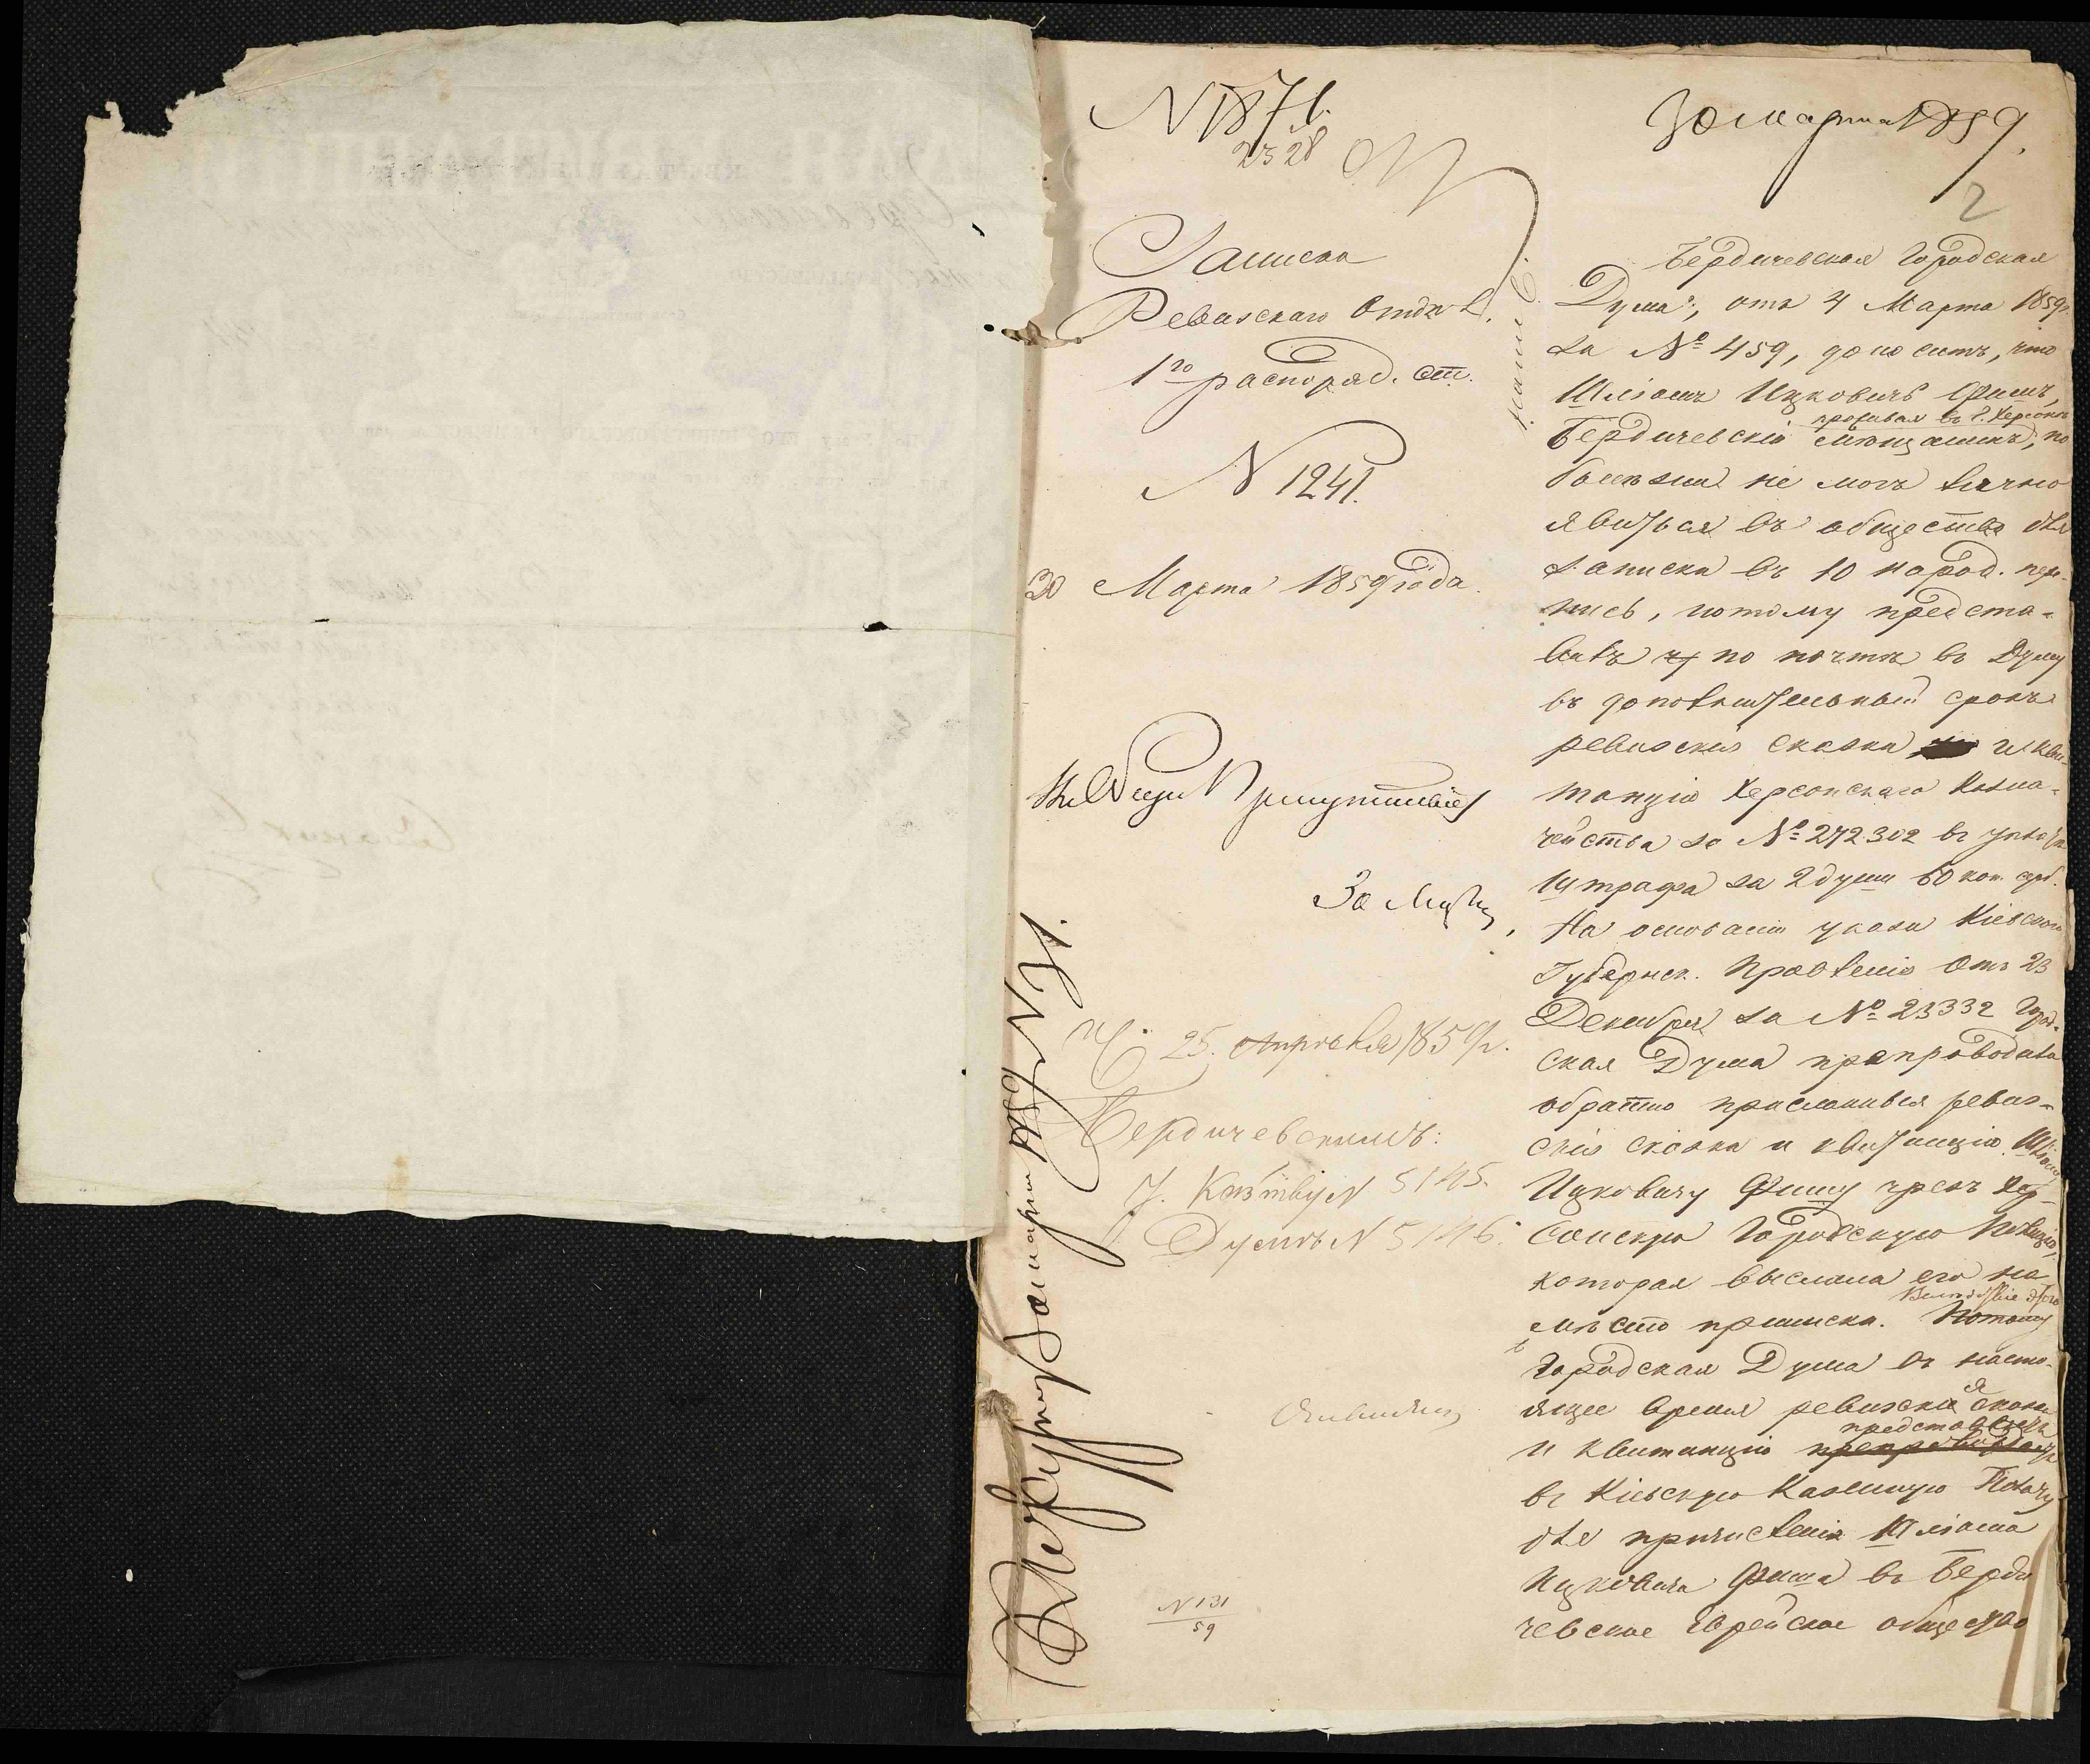 N 1871.
2328
30 марта 1859.
2
Записка
Ревизскаго Отдѣл.
1го распоряд. ст.
N 1241.
30 Марта 1859 года.
Въ Общее Присутствіе
25. Апрѣля 1859 г.
Бердичевскимъ:
У. Казнтву N 5145.
Думѣ N 5146.
N 131
59
Къ журналу 30 марта 1859 N 31.
Бердичевская Городская
Дума, отъ 4 Марта 1859 г.
за № 459, доноситъ, что
Шліома Ицковичъ Фишъ,
проживая въ г. Херсонѣ
Бердичевскій мѣщанинъ, по
болѣзни не могъ лично
явиться въ общество для
записки въ 10 народ. пере-
пись, потому предста-
вилъ по почтѣ въ Думу
въ дополнительный срокъ
ревизскія сказки и кви-
танцію Херсонскаго Казна-
чейства за № 272302 въ уплатѣ
штрафа за 2 души 60 коп. сереб.
На основаніи указа Кіевскаго
Губернск. Правленія отъ 23
Декабря за № 23332 Город-
ская Дума препроводила
обратно присланныя ревиз-
скія сказки и квитанцію Шліомѣ
Ицковичу Фишу чрезъ Хер-
сонскую Городскую Полицію,
которая выслала его на
Вслѣдствіе этого
мѣсто приписки. Потому
Городская Дума въ насто-
ящее время ревизскія сказки
представляетъ
и квитанцію препровождаетъ
въ Кіевскую Казенную Палату
для причисленія Шліома
Ицковича Фиша въ Берди-
чевское Еврейское общество